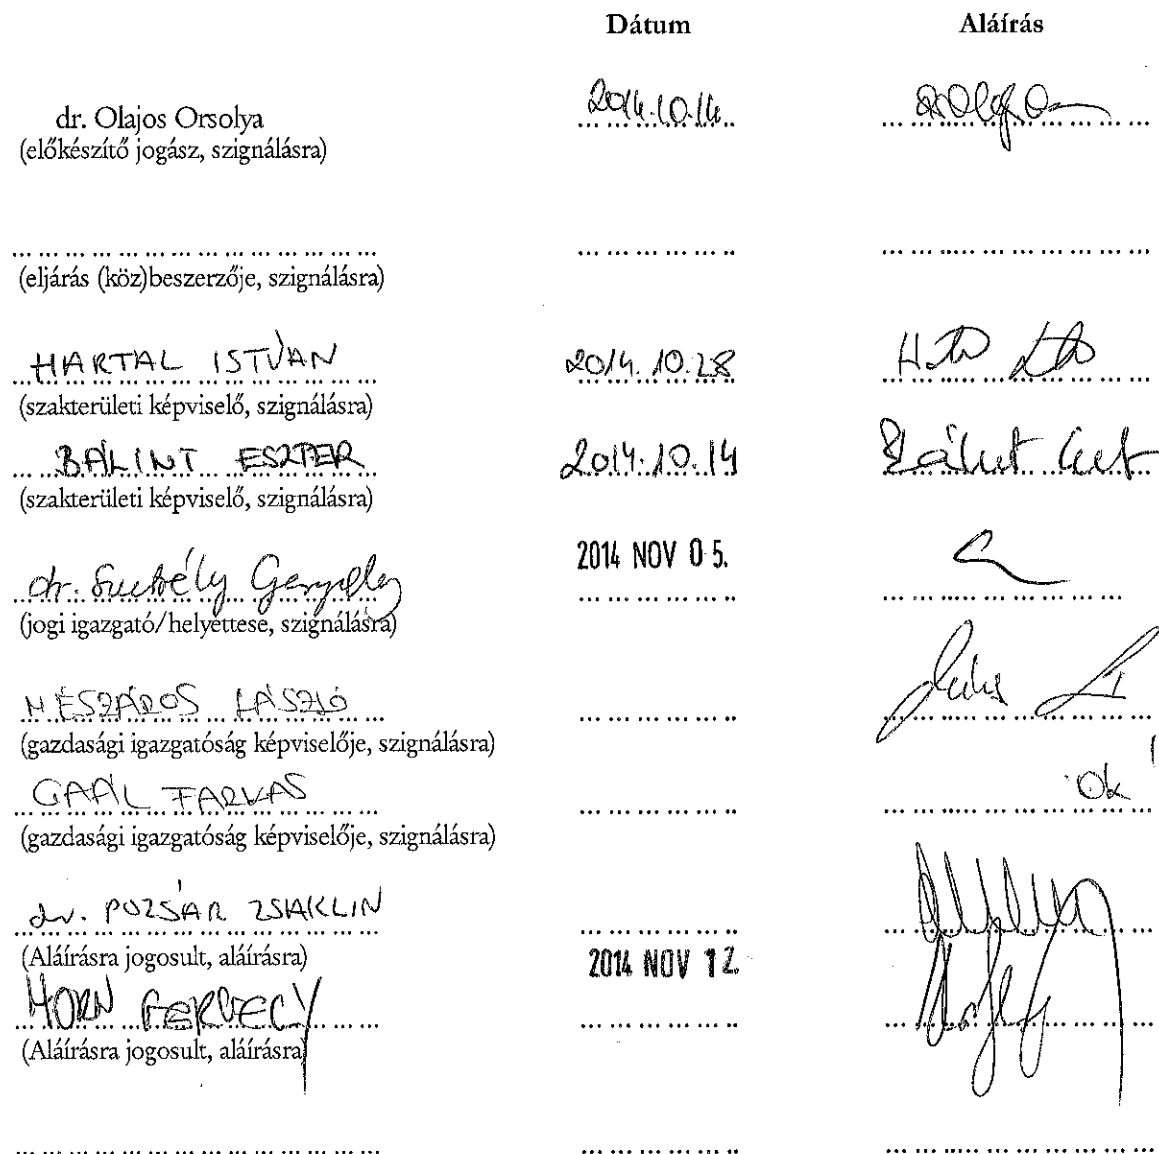 Dátum Aláírás
dr. Olajos Orsolya 2014.10.14.
(előkészítő jogász, szignálásra)
(eljárás (köz)beszerzője, szignálásra)
HARTAL ISTVÁN 2014.10.28
(szakterületi képviselő, szignálásra)
BÁLINT ESZTER 2014.10.14 Bálint Eszt
(szakterületi képviselő, szignálásra)
2014 NOV 05.
dr. Gergely
(jogi igazgató/helyettese, szignálásra)
MÉSZÁROS LÁSZLÓ
(gazdasági igazgatóság képviselője, szignálásra)
GAÁL FARKAS Ok
(gazdasági igazgatóság képviselője, szignálásra)
dr. POZSÁR ZSAKLIN
(Aláírásra jogosult, aláírásra) 2014 NOV 12.
HORN GERGELY
(Aláírásra jogosult, aláírásra)